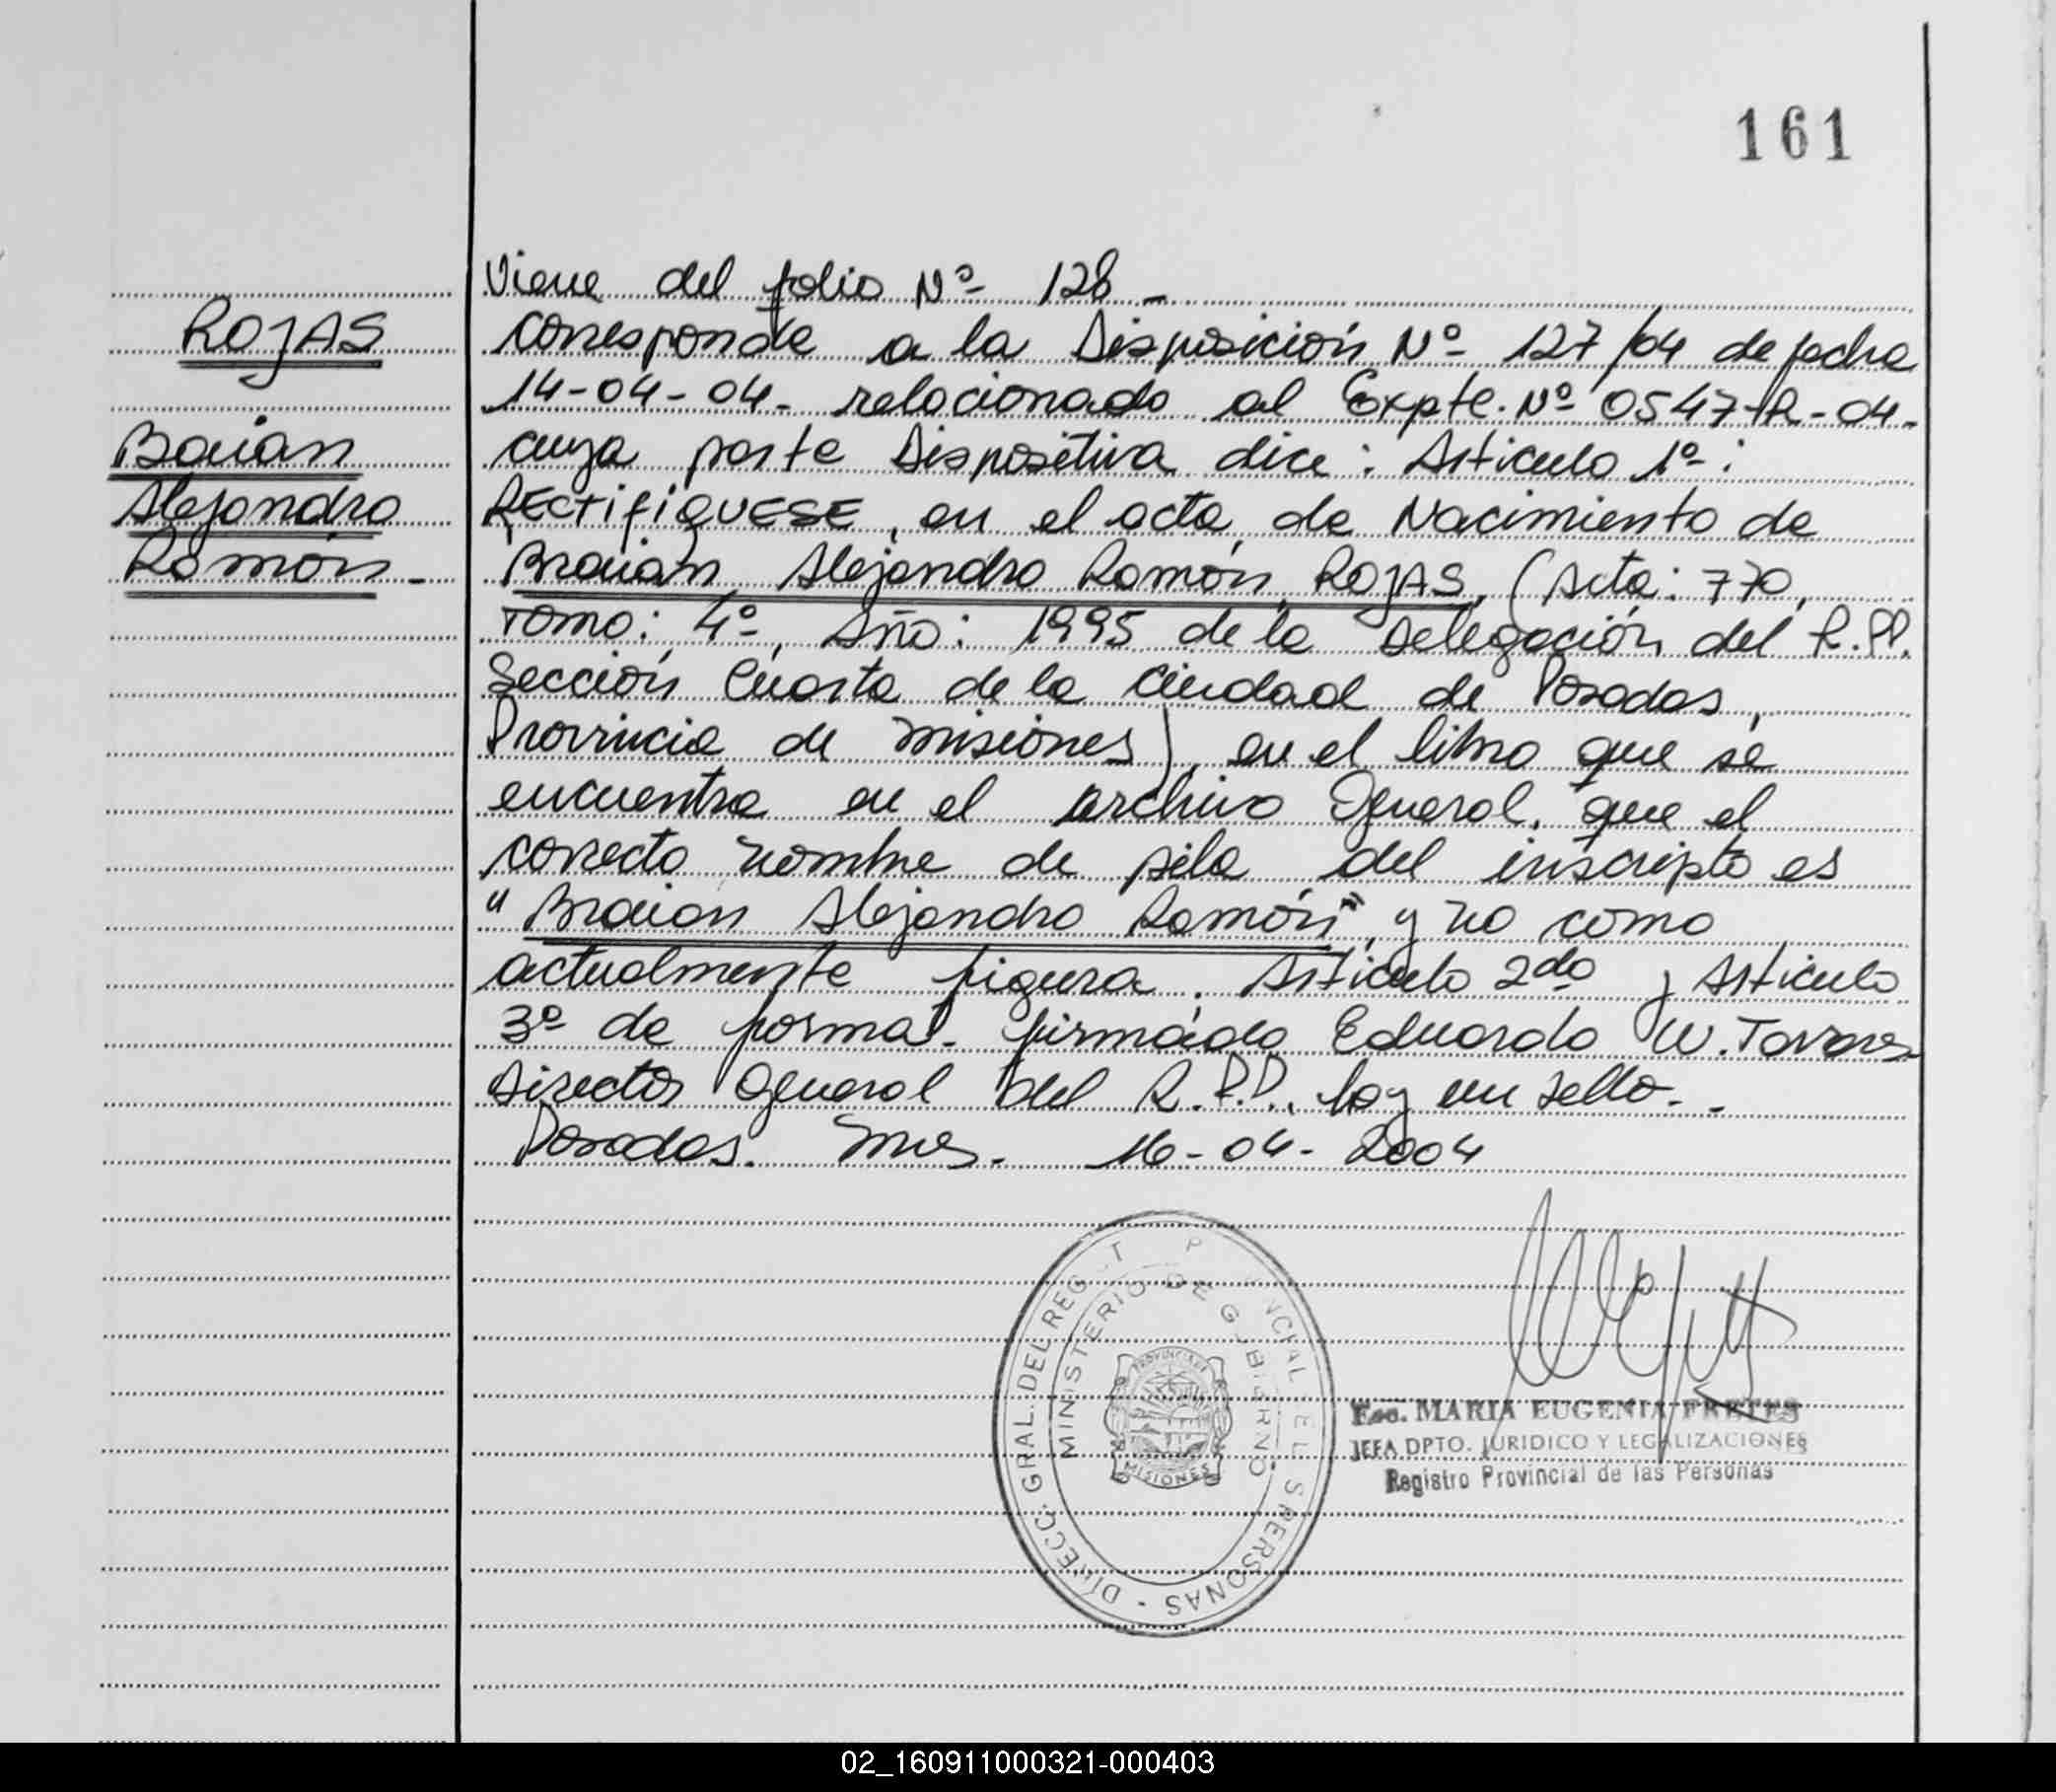 161
Viene del folio Nº 128 -
ROJAS
corresponde a la Disposición Nº 127/04 de fecha
14-04-04. relacionado al Expte. Nº 0547-R-04-
Braian
cuya parte Dispositiva dice: Articulo 1º:
Alejandro
RECTIFIQUESE, en el acta de Nacimiento de
Ramón -
Braian Alejandro Ramón ROJAS, (Acta: 770,
Tomo: 4º, Año: 1995 de la Delegación del R.PP.
Sección Cuarta de la Ciudad de Posadas,
Provincia de Misiones), en el libro que se
encuentra en el archivo General. que el
correcto nombre de pila del inscripto es
"Braian Alejandro Ramón", y no como
actualmente figura. Articulo 2do y Articulo
3º de forma. firmado Eduardo W. Tavares
Director General del R.P.P. hay un sello. -
Posadas. Mnes. 16-04-2004
DIRECC. GRAL. DEL PERSONAS
MINISTERIO DE GOBIERNO
PROVINCIA DE
MISIONES
Esc. MARIA EUGENIA FRETES
JEFA DPTO. JURIDICO Y LEGALIZACIONES
Registro Provincial de las Personas
02_160911000321-000403